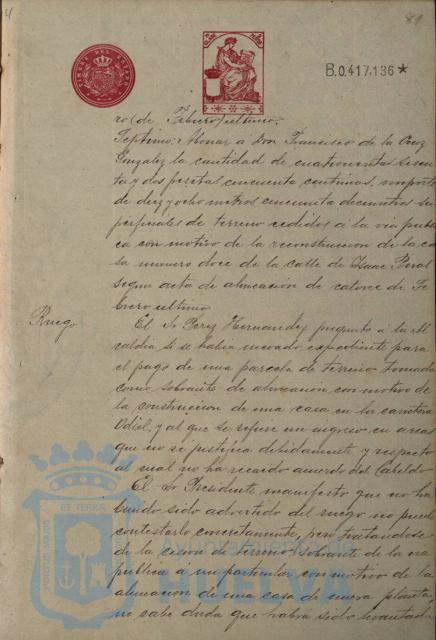 89
B.0.417.136*
ro (de Febrero) ultimo.
Septimo: Abonar a Don Francisco de la Cruz
Gonzalez la cantidad de cuatrocientas sesen
ta y dos pesetas cincuenta centimos, importe
de diez y ocho metros cincuenta decimetros su
perficiales de terreno cedidos á la via publi
ca con motivo de la reconstruccion de la ca
sa numero doce de la calle de Isaac Peral
segun acta de alineacion de catorce de Fe
brero ultimo
Ruego
El Sr Perez Hernandez pregunto á la Al
caldia si se habia incoado expediente para
el pago de una parcela de terreno tomada
como sobrante de alineacion con motivo de
la construccion de una casa en la carretera
Odiel, y al que se refiere un ingreso en arcas
que no se justifica debidamente y respecto
al cual no ha recaido acuerdo del Cabildo
El Sr Presidente manifesto que no ha
biendo sido advertido del ruego no puede
contestarlo concretamente, pero tratandose
de la cesion de terreno sobrante de la via
publica á un particular con motivo de la
alineacion de una casa de nueva planta,
no cabe duda que habrá sido levantada